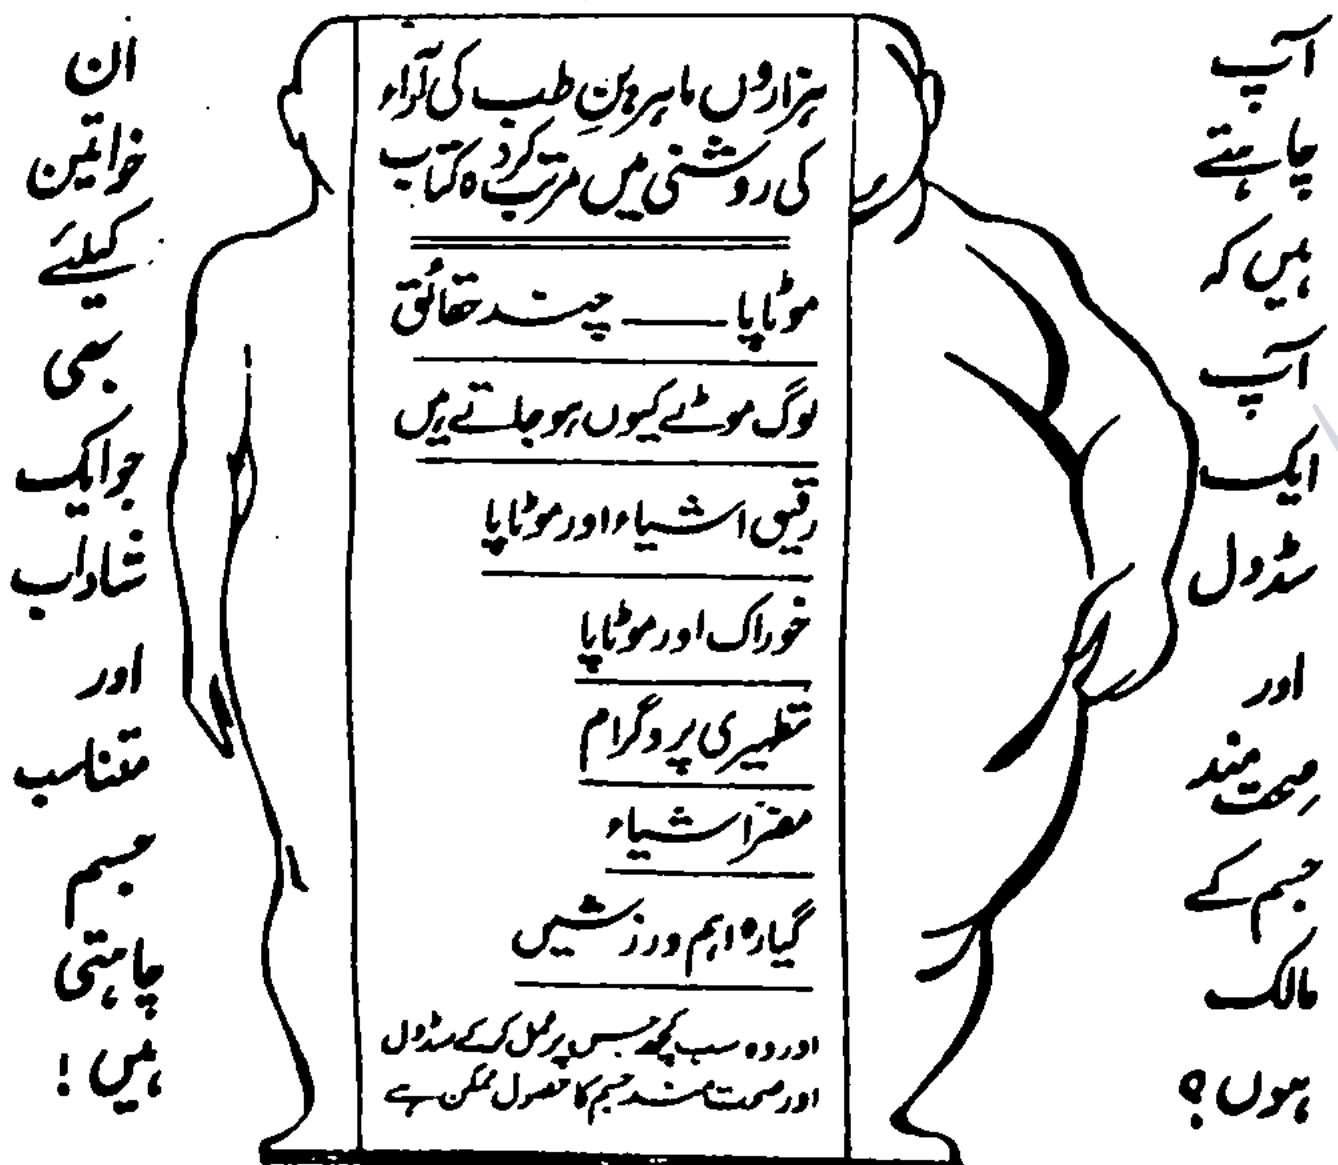 آپ
چاہتے
ہیں کہ
آپ
ایک
سڈول
اور
صحت مند
جسم کے
مالک
ہوں؟
ہزاروں ماہرینِ طب کی آراء
کی روشنی میں مرتب کردہ کتاب
موٹاپا —— چند حقائق
لوگ موٹے کیوں ہو جاتے ہیں
رقیق اشیاء اور موٹاپا
خوراک اور موٹاپا
تطہیری پروگرام
مضر اشیاء
گیارہ اہم ورزشیں
اور وہ سب کچھ جس پر عمل کر کے سڈول
اور صحت مند جسم کا حصول ممکن ہے
ان
خواتین
کیلئے
بھی
جو ایک
شاداب
اور
متناسب
جسم
چاہتی
ہیں!